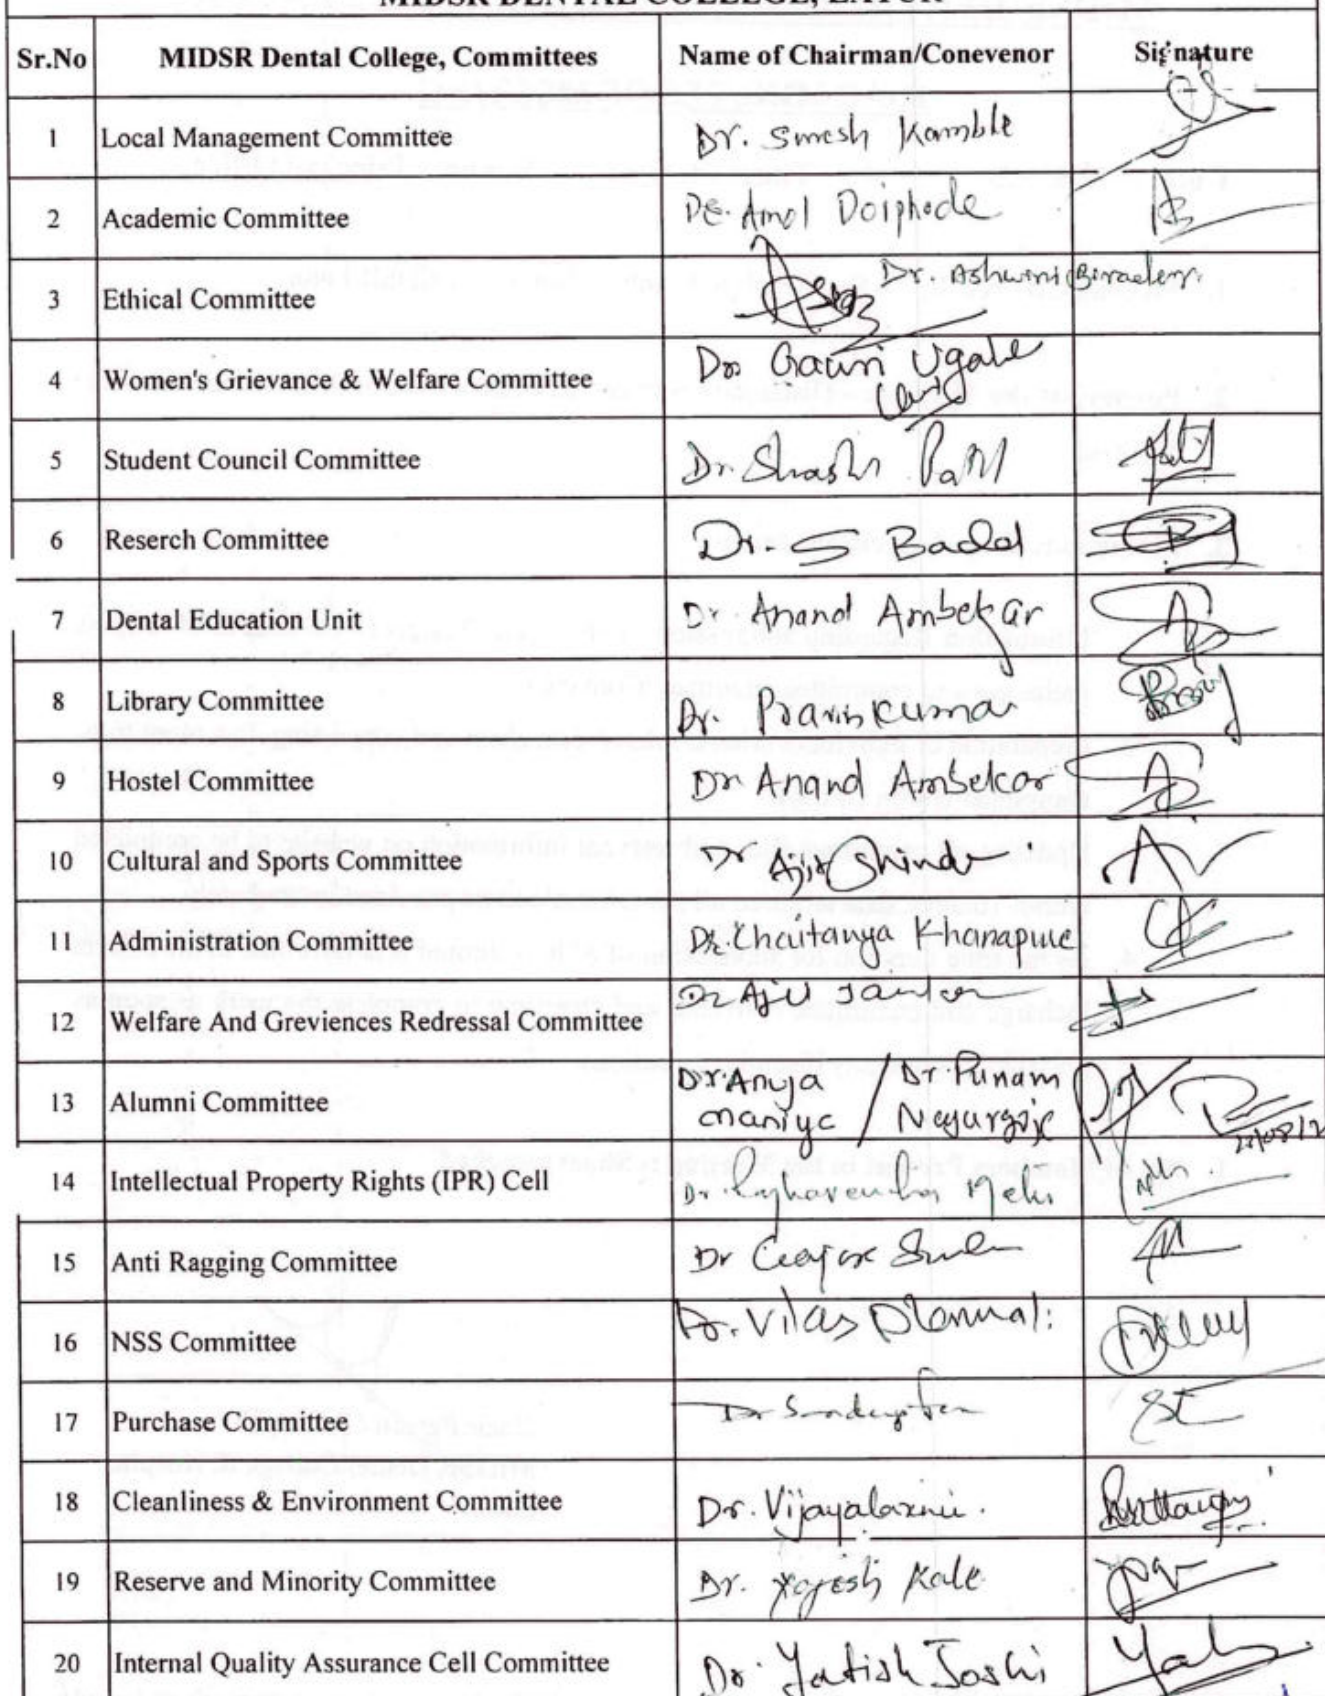 MIDSR DENTAL COLLEGE, LATUR
Sr.No MIDSR Dental College, Committees Name of Chairman/Conevenor Signature
1 Local Management Committee Dr. Suresh Kamble
2 Academic Committee Dr. Amol Doiphode
3 Ethical Committee Dr. Ashwini Biradar
4 Women's Grievance & Welfare Committee Dr. Gauri Ugale
5 Student Council Committee Dr Shashi Patil
6 Reserch Committee Dr. S Badd
7 Dental Education Unit Dr. Anand Ambekar
8 Library Committee Dr. Pravinkumar
9 Hostel Committee Dr Anand Ambekar
10 Cultural and Sports Committee Dr Ajit Shinde
11 Administration Committee Dr. Chaitanya Khanapure
12 Welfare And Greviences Redressal Committee Dr Ajit
13 Alumni Committee Dr Anuja maniyc / Dr. Punam Nagargoje
14 Intellectual Property Rights (IPR) Cell Dr. Raghavendra
15 Anti Ragging Committee Dr
16 NSS Committee Dr. Vilas
17 Purchase Committee Dr
18 Cleanliness & Environment Committee Dr. Vijayalaxmi.
19 Reserve and Minority Committee Dr. Yogesh Kale
20 Internal Quality Assurance Cell Committee Dr. Yatish Joshi